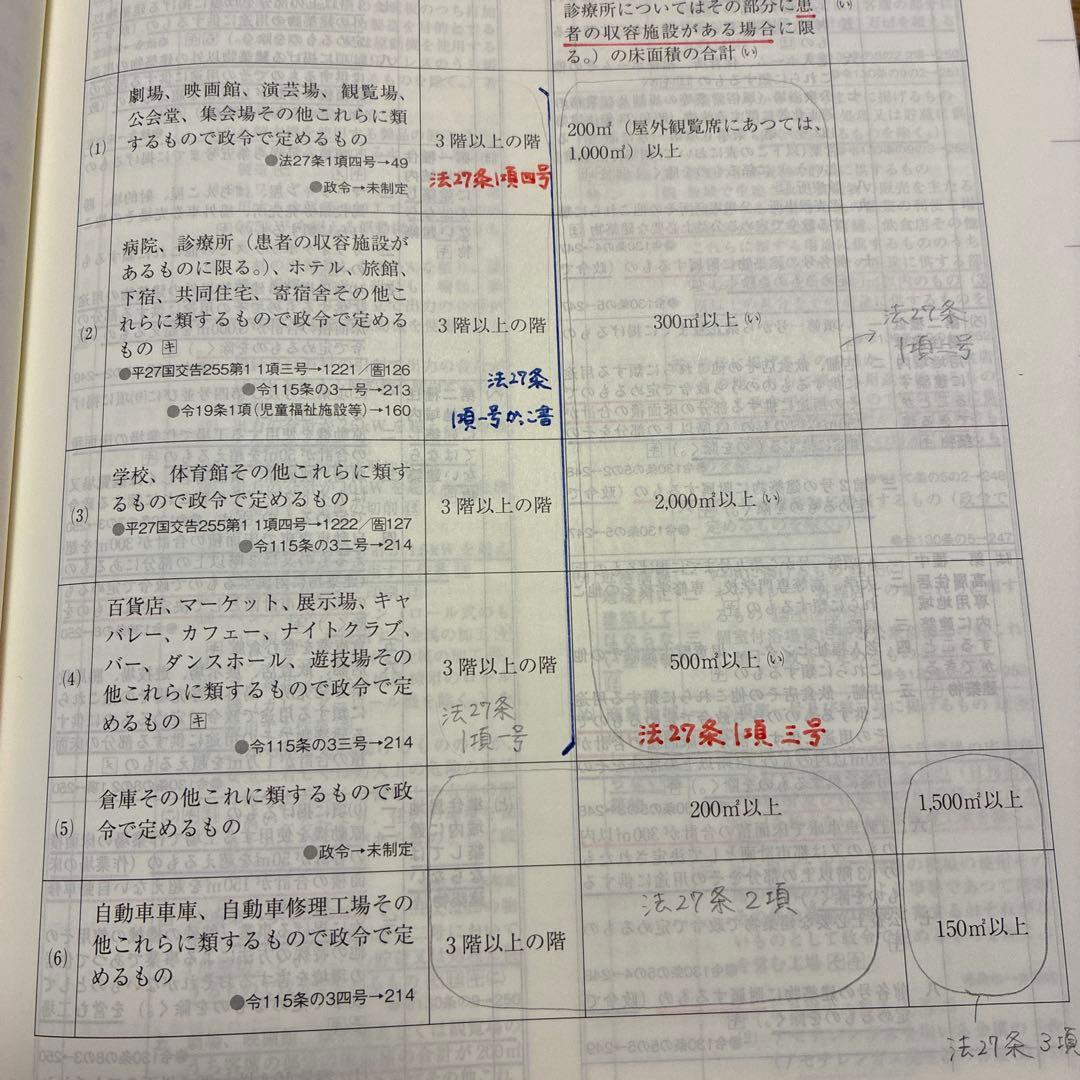 診療所についてはその部分に患
者の収容施設がある場合に限
る。）の床面積の合計(い)
(い)
(1)
劇場、映画館、演芸場、観覧場、
公会堂、集会場その他これらに類
するもので政令で定めるもの
●法27条1項四号→49
●政令→未制定
3階以上の階
法27条1項四号
200㎡（屋外観覧席にあつては、
1,000㎡）以上
(2)
病院、診療所（患者の収容施設が
あるものに限る。）、ホテル、旅館、
下宿、共同住宅、寄宿舎その他こ
れらに類するもので政令で定める
もの キ
●平27国交告255第1 1項三号→1221／告126
●令115条の3一号→213
●令19条1項(児童福祉施設等)→160
3階以上の階
法27条
1項一号かっこ書
300㎡以上(い)
法27条
1項一号
(3)
学校、体育館その他これらに類す
るもので政令で定めるもの
●平27国交告255第1 1項四号→1222／告127
●令115条の3二号→214
3階以上の階
2,000㎡以上(い)
(4)
百貨店、マーケット、展示場、キャ
バレー、カフェー、ナイトクラブ、
バー、ダンスホール、遊技場その
他これらに類するもので政令で定
めるもの キ
●令115条の3三号→214
3階以上の階
法27条
1項一号
500㎡以上(い)
法27条1項三号
(5)
倉庫その他これに類するもので政
令で定めるもの
●政令→未制定
200㎡以上
1,500㎡以上
(6)
自動車車庫、自動車修理工場その
他これらに類するもので政令で定
めるもの
●令115条の3四号→214
3階以上の階
法27条2項
150㎡以上
法27条3項